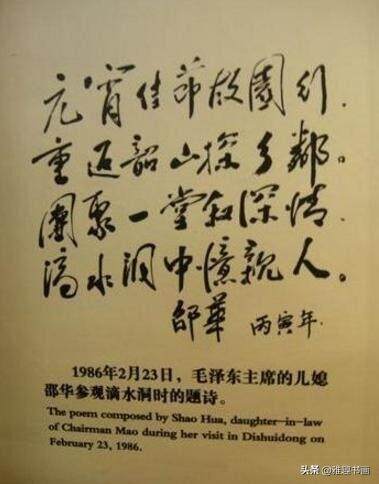 元宵佳节故園行.
重返韶山探乡鄰。
團聚一堂敘深情.
滴水洞中憶親人。
邵華 丙寅年.
1986年2月23日，毛泽东主席的儿媳
邵华参观滴水洞时的题诗。
The poem composed by Shao Hua, daughter-in-law
of Chairman Mao during her visit in Dishuidong on
February 23, 1986.
头条 @雅趣书画